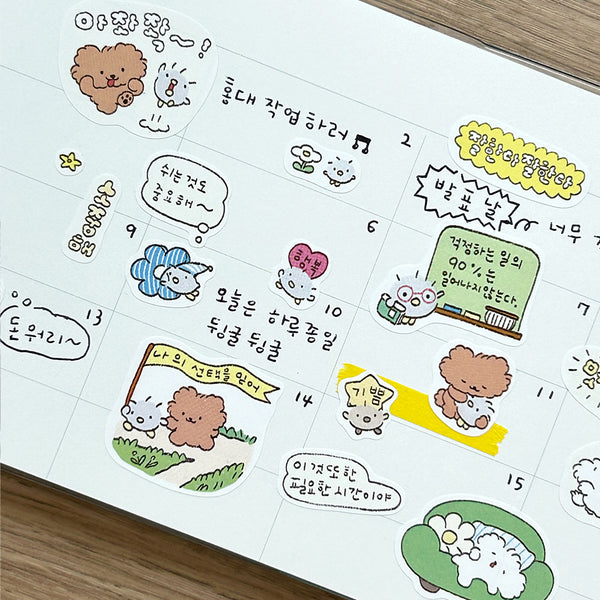 아짜짝~!
홍대 작업하러♬
2
잘한다잘한다
발표날
너무
쉬는것도
중요해~
9
6
행복
걱정하는 일의
90%는
일어나지않는다.
7
13
돈워리~
오늘은 하루종일
뒹굴 뒹굴
10
나의 선택을 믿어
14
기쁨
11
이것또한
필요한 시간이야
15